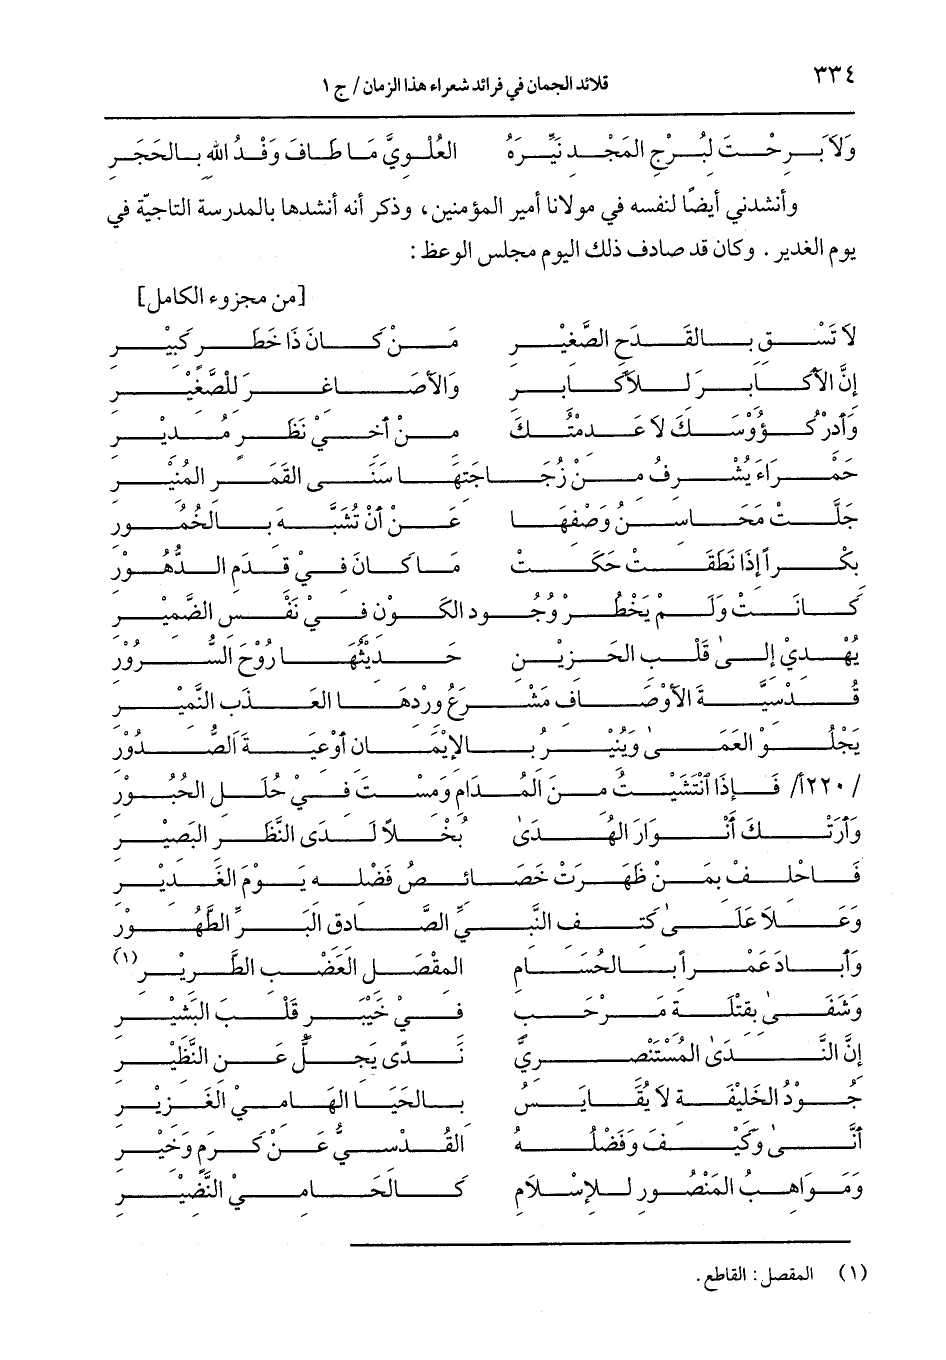 ٣٣٤
قلائد الجمان في فرائد شعراء هذا الزمان / ج ١
وَلاَ بَرِحْتَ لِبُرْجِ المَجْدِ نَيِّرَهُ العُلْوِيَّ مَا طَافَ وَفْدُ اللهِ بِالحَجَرِ
وأنشدني أيضًا لنفسه في مولانا أمير المؤمنين، وذكر أنه أنشدها بالمدرسة التاجيّة في
يوم الغدير. وكان قد صادف ذلك اليوم مجلس الوعظ:
[من مجزوء الكامل]
لاَ تَسْقِ بِالقَدَحِ الصَّغِيْرِ مَنْ كَانَ ذَا خَطَرٍ كَبِيْرِ
إنَّ الأَكَابِرَ لِلأَكَابِرِ وَالأَصَاغِرَ لِلصَّغِيْرِ
وَأَدِرْ كُؤُوْسَكَ لاَ عَدِمْتُكَ مِنْ أَخِيْ نَظَرٍ مُدِيْرِ
حَمْرَاءَ يُشْرِفُ مِنْ زُجَاجَتِهَا سَنَى القَمَرِ المُنِيْرِ
جَلَّتْ مَحَاسِنُ وَصْفِهَا عَنْ أَنْ تُشَبَّهَ بِالخُمُورِ
بِكْراً إذَا نَطَقَتْ حَكَتْ مَا كَانَ فِيْ قِدَمِ الدُّهُوْرِ
كَانَتْ وَلَمْ يَخْطُرْ وُجُودِ الكَوْنِ فِيْ نَفْسِ الضَّمِيْرِ
يُهْدِيْ إلىٰ قَلْبِ الحَزِيْنِ حَدِيْثُهَا رُوْحَ السُّرُوْرِ
قُدْسِيَّةَ الأَوْصَافِ مَشْرَعُ وِرْدِهَا العَذْبِ النَّمِيْرِ
يَجْلُوْ العَمَىٰ وَيُنِيْرُ بِالإِيْمَانِ أَوْعِيَةَ الصُّدُوْرِ
/ ٢٢٠أ/ فَإِذَا ٱنْتَشَيْتُ مِنَ المُدَامِ وَمِسْتَ فِيْ حُلَلِ الحُبُوْرِ
وَأَرَتْكَ أَنْوَارَ الهُدَىٰ بُخْلاً لَدَى النَّظَرِ البَصِيْرِ
فَاحْلِفْ بِمَنْ ظَهَرَتْ خَصَائِصُ فَضْلِهِ يَوْمَ الغَدِيْرِ
وَعَلاَ عَلَىٰ كَتِفِ النَّبِيِّ الصَّادِقِ البَرِّ الطَّهُوْرِ
وَأَبَادَ عَمْراً بِالحُسَامِ المِقْصَلِ العَضْبِ الطَّرِيْرِ(١)
وَشَفَىٰ بِقِتْلَةِ مَرْحَبٍ فِيْ خَيْبَرٍ قَلْبَ البَشِيْرِ
إنَّ النَّدَىٰ المُسْتَنْصِرِيَّ نَدًى يَجِلُّ عَنِ النَّظِيْرِ
جُوْدُ الخَلِيْفَةِ لاَ يُقَايَسُ بِالحَيَا الهَامِيْ الغَزِيْرِ
أَنَّىٰ وَكَيْفَ وَفَضْلُهُ القُدْسِيُّ عَنْ كَرَمٍ وَخَيْرِ
وَمَوَاهِبُ المَنْصُورِ لِلإِسْلاَمِ كَالحَامِيْ النَّصِيْرِ
(١) المقصل: القاطع.